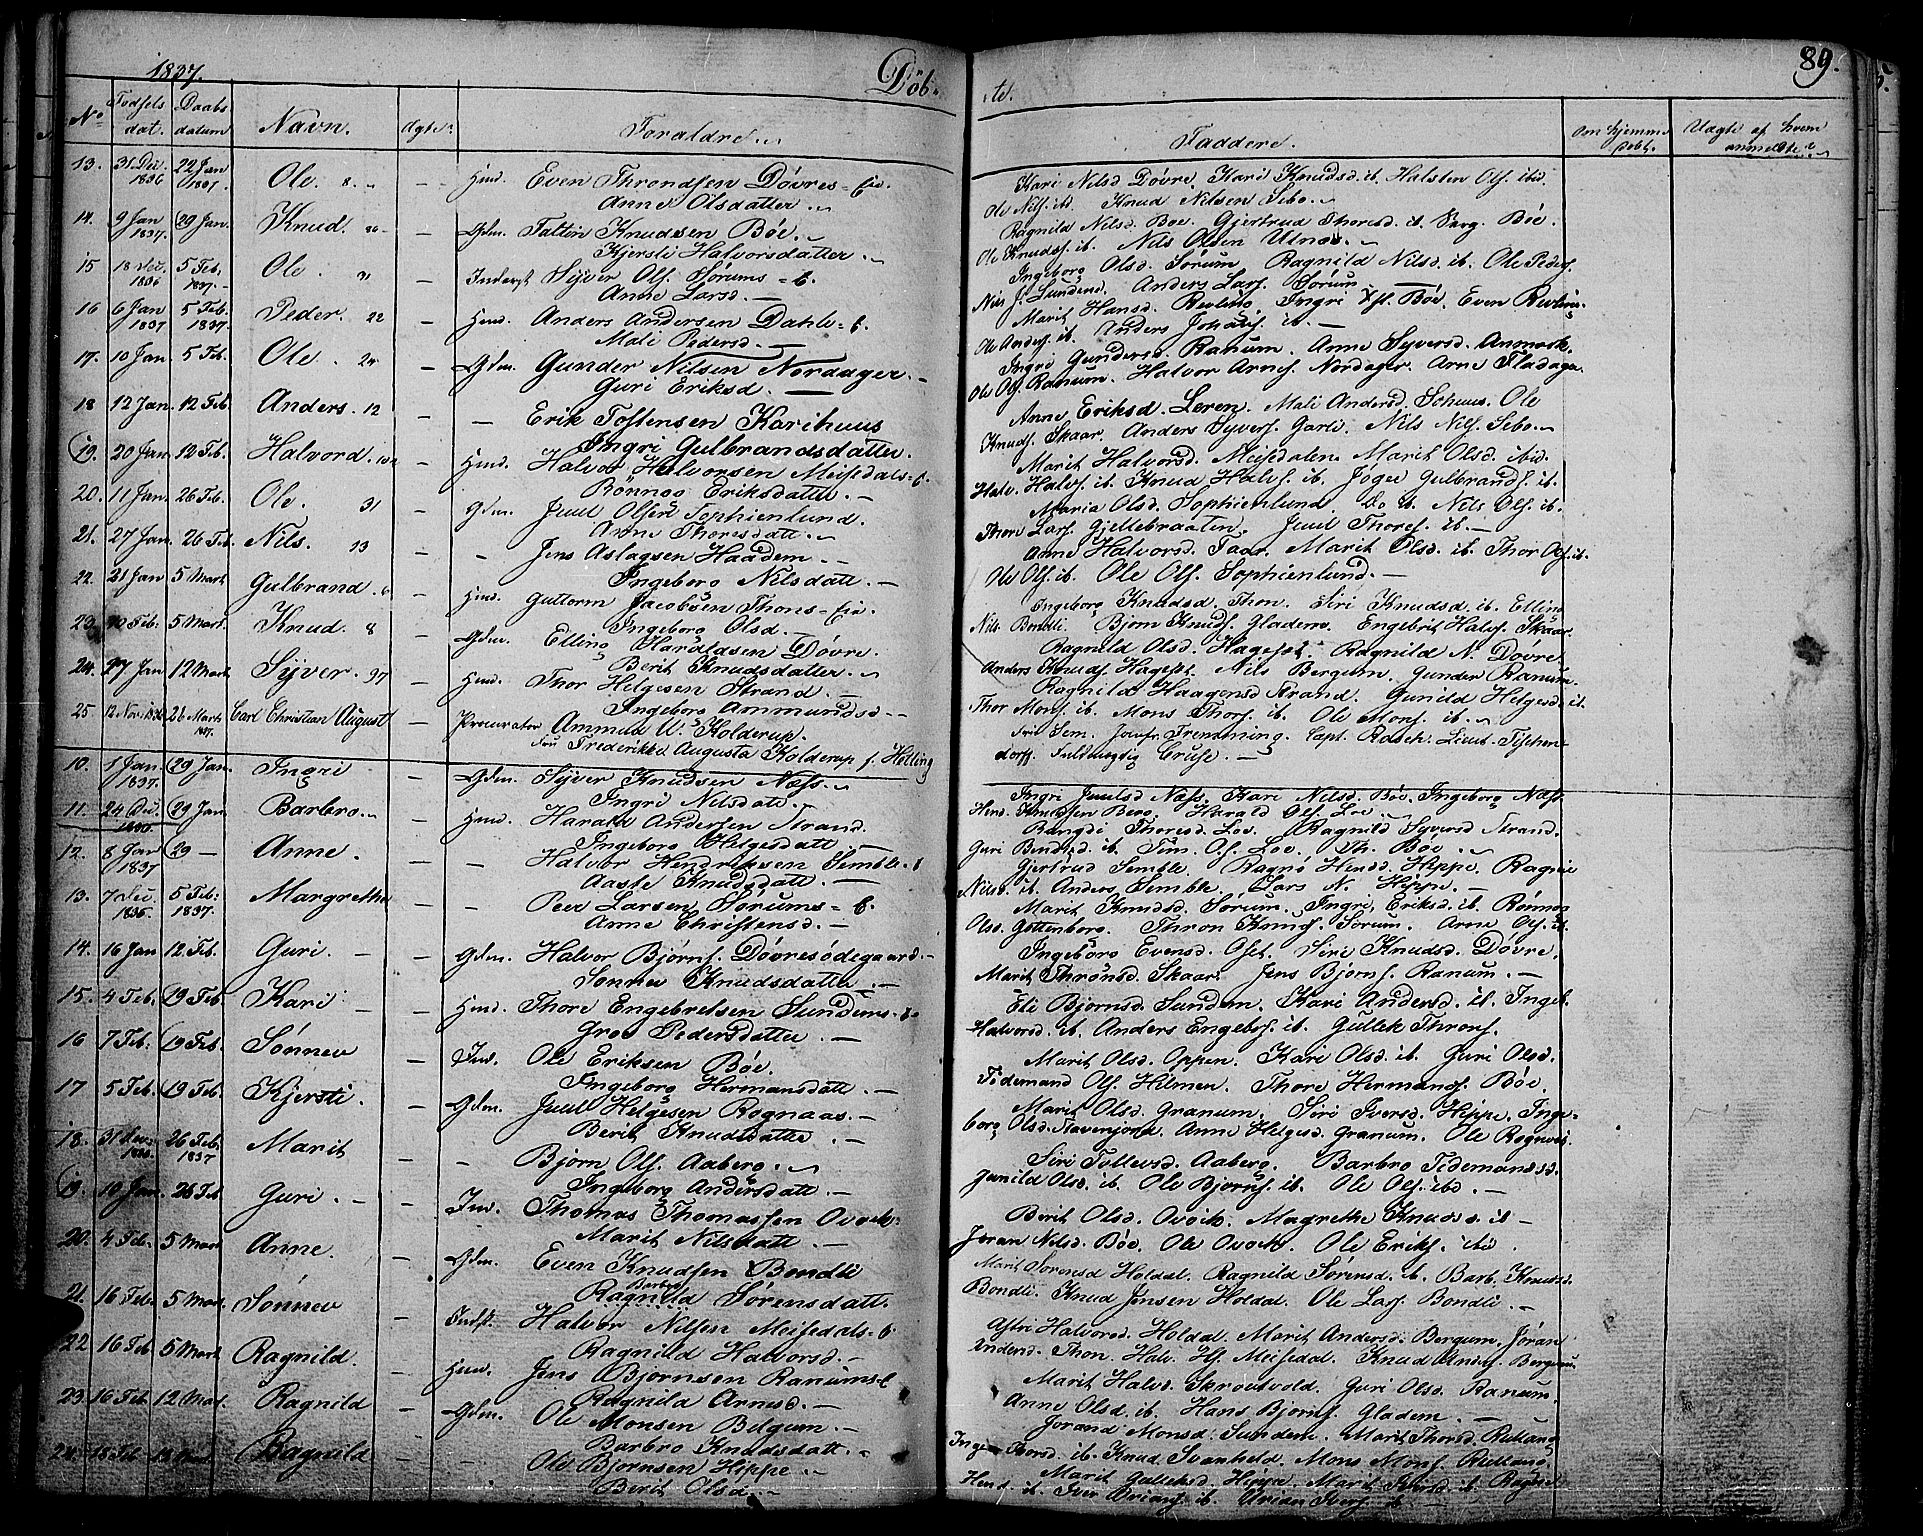 1837.
Döb-
te.
89.
No
Födsels dat.
Daabs datum
Navn.
Ægte
Foraldre.
Faddere.
Om hjemme döbt.
Uægte af hvem anmeldte
13. 31 Dec 1836 22 Jan 1837. Ole. 8. — Hmd. Even Throndsen Dövres-Eie.
Anne Olsdatter.
Kari Nilsd Dövre. Kari Knudsd. ib. Halsten Ols. ibid.
Ole Nils. ibd. Knud Nilsen Sebo.
14. 9 Jan 1837. 29 Jan. Knud. — Gdm. Knudsen Böe.
Kjersti Halvorsdatter.
Ragnild Nilsd. Boe. Gjertrud Thoresd. ib. Böe.
Ole Knuds. ib. Nils Olsen Ulnes.
15 18 Dec 1836 5 Feb. 1837. Ole. 21 — Inderst Syver Ols. Sörums-E.
Anne Larsd. —
Ingeborg Olsd. Sörum. Ragnild Nilsd. ib. Ole Peders.
Nils J. Sundend. Anders Lars. Sörum
16 6 Jan 1837 5 Feb. 1837. Peder. 22 — Hmd. Anders Andersen Dahle-E.
Mali Pedersd. —
Marit Hansd. Revling. Ingri Böe. Even Revling
Ole Anders. ib. Anders Johans. ib. —
17. 10 Jan. 5 Feb. Ole. 24 — Gdm. Gunder Nilsen Nordager.
Guri Eriksd. —
Ingri Gundersd. Ranum. Anne Syversd.
Ole Ols. Ranum. Halvor Arnes. Nordager. Arne Fladager
18 12 Jan. 12 Feb. Anders. 12 — Erik Tostensen Karihuus
Ingri Gulbrandsdatter.
Anne Eriksd. Leren. Mali Andersd. Ole
Knuds. Skaar. Anders Syvers. Garli. Nils Nils. Sebo.
19. 20 Jan 12 Feb. Halvord. — Hmd. Halvor Halvorsen Meisdals-E.
Rönnog Eriksdatter. —
Marit Halvorsd. Meisdalen. Marit Olsd. ibid.
Halv. Halvs. ib. Knud Halvs. ib. Jöger Gulbrands. ib.
20. 11 Jan. 26 Feb. Ole. 31 — Gdm. Juul Olsen Sophienlund.
Anne Thoresdatt.
Maria Olsd. Sophienlund. Do. ib. Nils Ols. ib.
Thore Lars. Gjellebraaten. Juul Thores. ib. —
21. 27 Jan 26 Feb. Nils. 13 — Jens Aslagsen Haadem.
Ingeborg Nilsdatt. —
Anne Halvorsd. Faar. Marit Olsd. ib. Thor Ols. ib.
Ole Ols. ib. Ole Ols. Sophienlund. —
22. 21 Jan 5 Mart Gulbrand. 6 — Hmd. Guttorm Jacobsen Thons-Eie.
Ingeborg Olsd. —
Ingeborg Knudsd. Thon. Siri Knudsd. ib. Elling
Nils. Bondli Bjorn Knuds. Gladem. Engebrit Halvs. Skaar.
23. Feb. 5 Mart. Knud. 8 — Gdm. Elling Haraldsen Dövre.
Berit Knudsdatter.
Ragnild Olsd. Hagesæt. Ragnild N. Dövre
Anders Knuds. Hagesæt. Nils Bergum. Gunder Ranum.
24. 27 Jan 12 Mart. Syver. 97 — Hmd. Thor Helgesen Strand. —
Ingeborg Ammundsd. —
Ragnild Haagensd. Strand. Gunild Helgesd. ib.
Thor Mons. ib. Mons Thors. ib. Ole Mons. ib.
25 12 Nov 1836 26 Marts 1837. Carl Christian August — Procurator Ammun U. Kolderup.
Fru Frederikke Augusta Kolderup f. Hetting
Fru Sem. Jomfr. Fremming. Capt. Rasch. Lieut. Tischen-
dorff. Fuldmægtig Cruse. —
10. 1 Jan. 1837. 29 Jan. Ingri — Gdm. Syver Knudsen Næss.
Ingri Nilsdatt. —
Ingri Juulsd Næss. Kari Nilsd. Böe. Ingeborg Næss.
Hend. Knudsen Berg. Harald Ols. Loe.
11. 24 Dec. 1836. 29 Jan. Barbro. — Hmd. Harald Andersen Strand.
Ingeborg Helgesdatt. —
Rangdi Thoresd. Loe. Ragnild Syversd Strand.
Guri Bendsd. ib. Sim. Ols. Loe. Th. Böe.
12. 8 Jan 1837 29 — Anne. — Halvor Hendriksen Semble-E
Aaste Knudsdatt. —
Gjertrud Semble. Ragnö Hend. Hippe. Ragnil
Nilsd. ib. Anders Semble. Lars N. Hippe. —
13. 7 Dec. 1836. 5 Feb: 1837. Margrethe — Peer Larsen Sorums-E.
Anne Christensd. —
Marit Knudsd. Sorum. Ingri Eriksd. ib. Rönnog
Olsd. Gottenborg. Thron Knuds. Sorum. Arne Ols. ib.
14. 16 Jan 12 Feb. Guri. — Gdm. Halvor Björns. Dövresödegaard.
Sonnev Knudsdatter. —
Ingeborg Evensd. Oset. Siri Knudsd. Dövre.
Marit Thronsd. Skaar. Jens Bjorns. Ranum. —
15. 4 Feb. 19 Feb. Kari — Hmd. Thore Engebretsen Sundems-E.
Gro Pedersdatter. —
Eli Bjornsd. Sundem. Kari Andersd. ib. Ingeb.
Halvorsd. ib. Anders Engebrs. ib. Gullek Throns.
16 7 Feb. 19 Feb. Sönnev — Ind. Ole Eriksen Böe.
Ingeborg Hermansdatt. —
Marit Olsd. Oppen. Kari Olsd. ib. Guri Olsd.
Tidemand Ols. Helmen. Thore Hermands. Böe.
17 5 Feb. 19 Feb. Kjersti. — Gdm. Juul Helgesen Rognaas. —
Berit Knudsdatter. —
Marit Olsd. Granum. Siri Iversd. Hippe. Inge-
borg Olsd. Anne Helgesd. Granum. Ole Rognaas.
18. 31 Dec. 1836. 26 Feb. 1837 Marit — Bjorn Ols. Aaberg.
Ingeborg Andersdatt. —
Siri Tollevsd. Aaberg. Barbro Tidemandsd.
Gunild Olsd. ib. Ole Bjorns. ib. Ole Ols. ibd. —
19. 10 Jan. 26 Feb Guri. — Ind. Thomas Thomassen
Marit Nilsdatt. —
Berit Olsd. Magrethe Knudsd. ib —
Joran Nilsd. Böe. Ole Ole Eriks. ibid.
20. 4 Feb. 5 Mart Anne. — Gdm. Even Knudsen Bondli
Barbro
Ragnild Sorensdatt.
Marit Sorensd Holdal. Ragnild Sörensd. ib. Barb. Knudsd.
Bondli. Knud Jensen Holdal. Ole Lars. Bondli. —
21. 16 Feb. 5 Mart. Sönnev — Indst. Halvor Nilsen Meisdals-E.
Ragnild Halvorsd. —
Astri Halvorsd. Holdal. Marit Andersd. Bergum. Jöran
Andersd. Thon. Halv. Meisdal. Knud Anders. Bergum.
22 16 Feb 5 Mart Ragnild. — Hmd. Jens Bjornsen Ranums-E
Ragnild Arnesd. —
Marit Halvd. Skroutvold. Guri Olsd. Ranum.
Anne Olsd. ib. Hans Bjorns. Gladem. —
23. 16 Feb 12 Mart. Ragnild — Gdm. Ole Monsen Belgum. —
Barbro Knudsdatt. —
Jorand Monsd. Sundem. Marit Thorsd. Rutlang
Thorsd. ib. Knud Svenheld. Mons Mons. Rutlang.
24. 18 Feb Ragnild — Ole Bjornsen Hippe.
Berit Olsd. —
Marit Gulleksd. Hippe. Marit Iversd. ib Ragnil
Hend. ib. Iver ib.